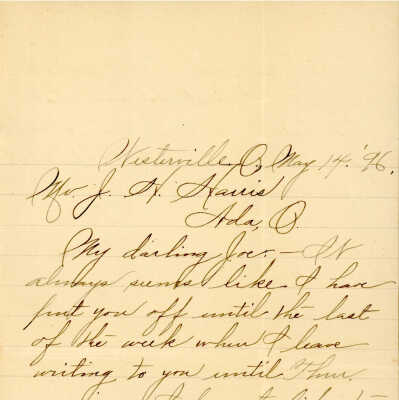 Westerville, O., May 14. '96.
Mr. J. H. Harris
Ada, O.
My darling Joe:- It
always seems like I have
put you off until the last
of the week when I leave
writing to you until Thur.